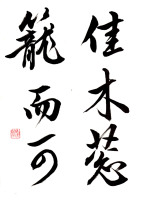 佳木葱
籠而可